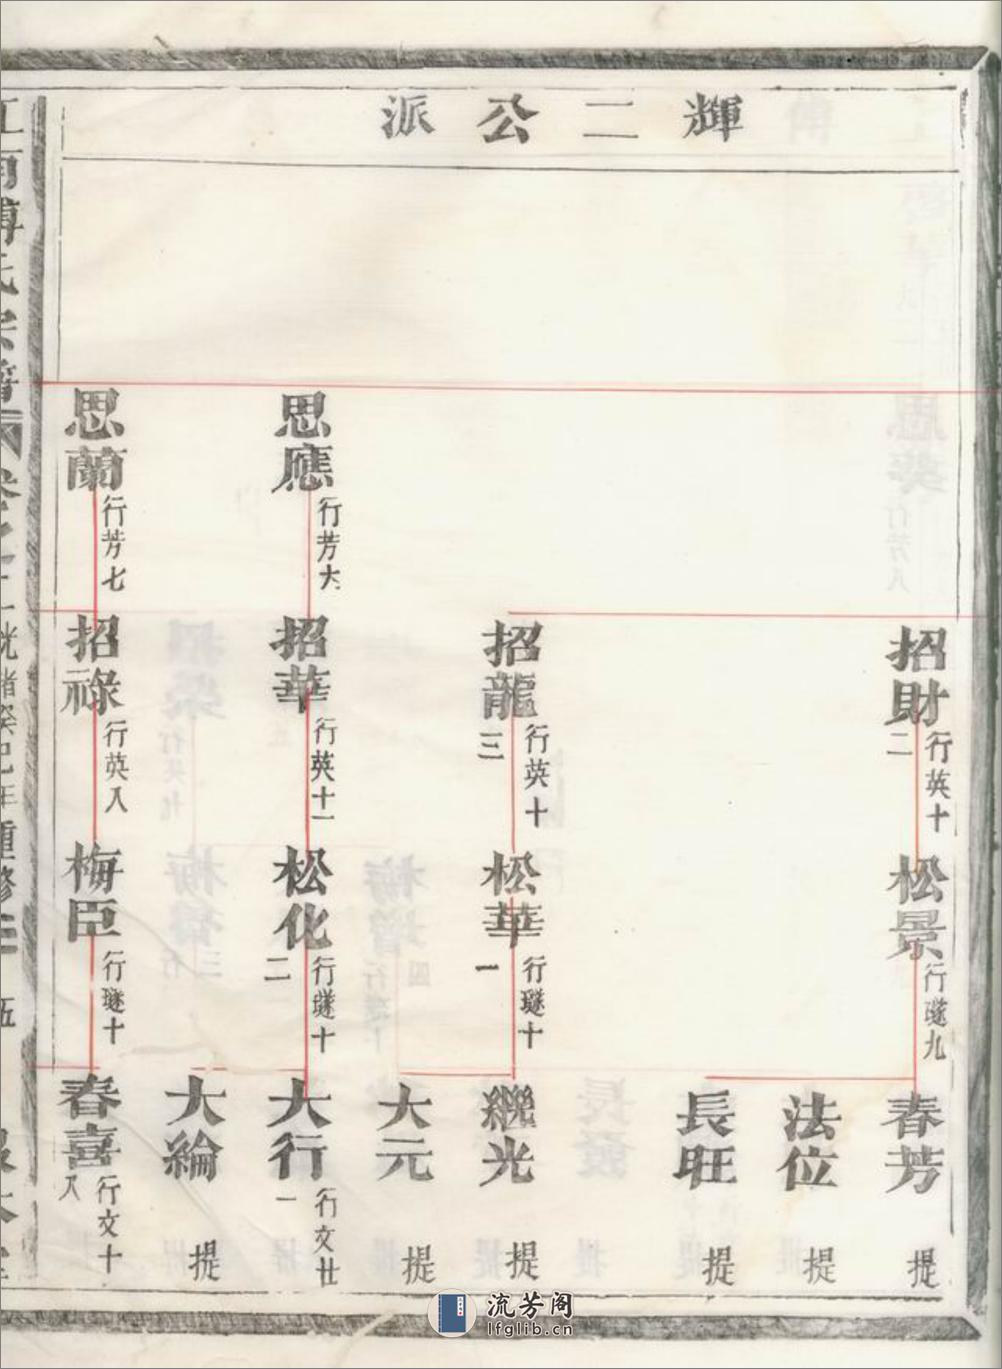 輝二公派
招財 行英十二
松景 行璲九
春芳 提
法位 提
長旺 提
招龍 行英十三
松華 行璲十一
繼光 提
大元 提
思應 行芳六
招華 行英十一
松化 行璲十二
大行 行文廿一
大綸 提
思蘭 行芳七
招祿 行英八
梅臣 行璲十
春喜 行文十八
流芳阁
lfglib.cn